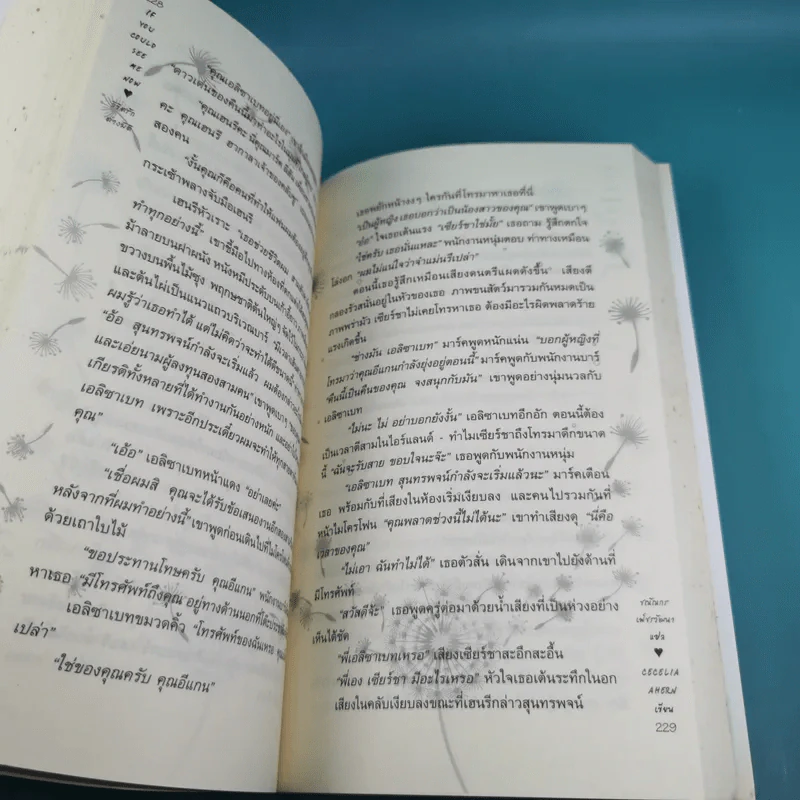 228
IF
YOU
COULD
SEE
ME
NOW
♥
"คุณเอลิซาเบท
"ดาวเด่นของคืนนี้
คะ คุณเฮนรี ฮากาลาเจ้าของคลับ
สองคน
"งั้นคุณก็คือคนที่ทำให้แฟนผมต้อง
กระเช้าพลางจับมือเฮนรี
เฮนรีหัวเราะ "เธอช่วยชีวิตผม
ทำทุกอย่างนี้" เขาชี้มือไปทางห้องที่
ม้าลายบนฝาผนัง หนังหมีประดับบน
ขวางบนพื้นไม้ซุง พฤกษชาติต้นใหญ่ๆ
และต้นไผ่เป็นแนวแถวบริเวณบาร์ "มีเวลา
ผมรู้ว่าเธอทำได้ แต่ไม่คิดว่าจะทำได้ดีขนาดนี้"
"อ้อ สุนทรพจน์กำลังจะเริ่มแล้ว ผมต้องกล่าว
และเอ่ยนามผู้ลงทุนสองสามคน" เขาพูดเบาๆ
เกียรติทั้งหลายที่ได้ทำงานกันอย่างหนัก และอย่า
เอลิซาเบท เพราะอีกประเดี๋ยวผมจะทำให้ทุกสายตา
คุณ"
"เอ้อ" เอลิซาเบทหน้าแดง "อย่าเลยค่ะ"
"เชื่อผมสิ คุณจะได้รับข้อเสนองานอีกสองสาม
หลังจากที่ผมทำอย่างนี้" เขาพูดก่อนเดินไปที่ไมโครโฟน
ด้วยเถาใบไม้
"ขอประทานโทษครับ คุณอีแกน" พนักงาน
หาเธอ "มีโทรศัพท์ถึงคุณ อยู่ทางด้านนอกที่โต๊ะประชา
เอลิซาเบทขมวดคิ้ว "โทรศัพท์ของฉันเหรอ
เปล่า"
"ใช่ของคุณครับ คุณอีแกน"
เธอพยักหน้างงๆ ใครกันที่โทรมาหาเธอที่นี่
"เป็นผู้หญิง เธอบอกว่าเป็นน้องสาวของคุณ" เขาพูดเบาๆ
"อ้อ" ใจเธอเต้นแรง "เซียร์ชาใช่มั้ย" เธอถาม รู้สึกตกใจ
"ใช่ครับ เธอนั่นแหละ" พนักงานหนุ่มตอบ ท่าทางเหมือน
โล่งอก "ผมไม่แน่ใจว่าจำแม่นรึเปล่า"
ตอนนี้เธอรู้สึกเหมือนเสียงดนตรีแผดดังขึ้น เสียงตี
กลองรัวสนั่นอยู่ในหัวของเธอ ภาพขนสัตว์มารวมกันหมดเป็น
ภาพพร่ามัว เซียร์ชาไม่เคยโทรหาเธอ ต้องมีอะไรผิดพลาดร้าย
แรงเกิดขึ้น
"ช่างมัน เอลิซาเบท" มาร์คพูดหนักแน่น "บอกผู้หญิงที่
โทรมาว่าคุณอีแกนกำลังยุ่งอยู่ตอนนี้" มาร์คพูดกับพนักงานบาร์
"คืนนี้เป็นคืนของคุณ จงสนุกกับมัน" เขาพูดอย่างนุ่มนวลกับ
เอลิซาเบท
"ไม่นะ ไม่ อย่าบอกยังงั้น" เอลิซาเบทอึกอัก ตอนนี้ต้อง
เป็นเวลาตีสามในไอร์แลนด์ - ทำไมเซียร์ชาถึงโทรมาดึกขนาด
นี้ "ฉันจะรับสาย ขอบใจนะจ๊ะ" เธอพูดกับพนักงานหนุ่ม
"เอลิซาเบท สุนทรพจน์กำลังจะเริ่มแล้วนะ" มาร์คเตือน
เธอ พร้อมกับที่เสียงในห้องเริ่มเงียบลง และคนไปรวมกันที่
หน้าไมโครโฟน "คุณพลาดช่วงนี้ไม่ได้นะ" เขาทำเสียงดุ "นี่คือ
เวลาของคุณ"
"ไม่เอา ฉันทำไม่ได้" เธอตัวสั่น เดินจากเขาไปยังด้านที่
มีโทรศัพท์
"สวัสดีจ้ะ" เธอพูดครู่ต่อมาด้วยน้ำเสียงที่เป็นห่วงอย่าง
เห็นได้ชัด
"พี่เอลิซาเบทเหรอ" เสียงเซียร์ชาสะอึกสะอื้น
"พี่เอง เซียร์ชา มีอะไรเหรอ" หัวใจเธอเต้นระทึกในอก
เสียงในคลับเงียบลงขณะที่เฮนรีกล่าวสุนทรพจน์
เพ็ชรรัตนา
แปล
♥
CECELIA
AHERN
เขียน
229